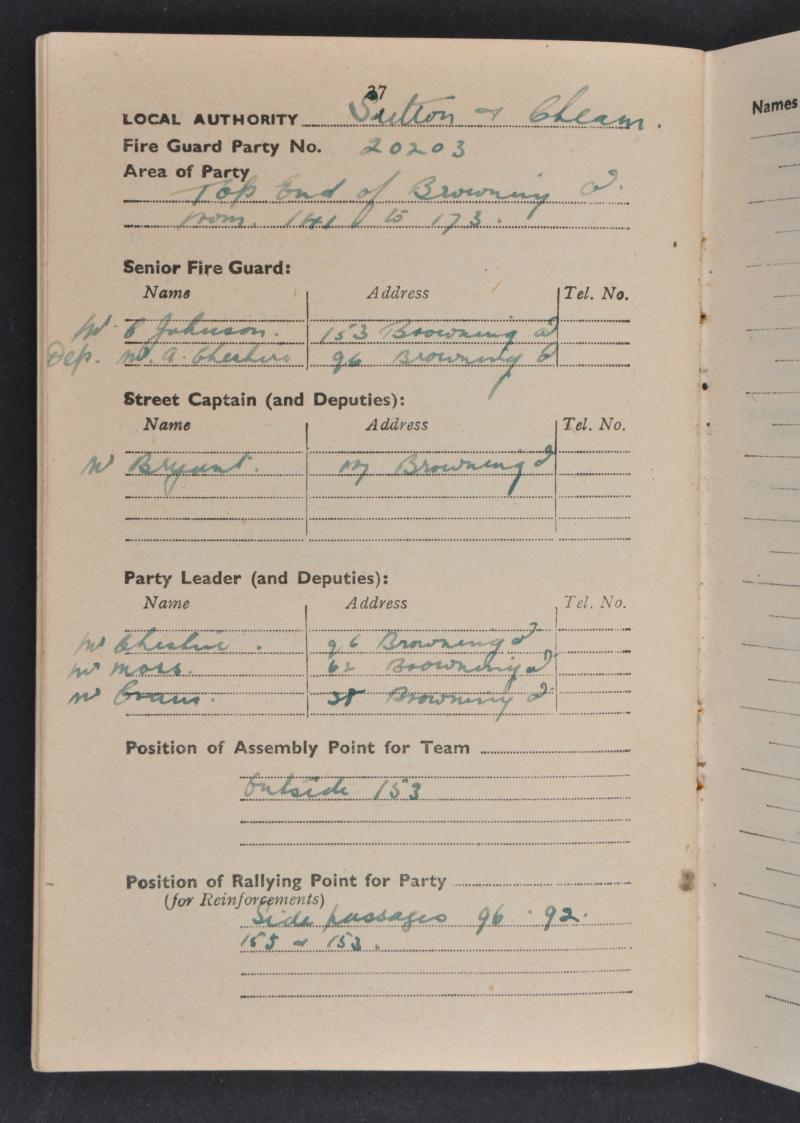 37
LOCAL AUTHORITY Sutton & Cheam.
Fire Guard Party No. 20203
Area of Party
Top End of Browning
from 141 to 173.
Senior Fire Guard:
Name Address Tel. No.
Mr Johnson. 153 Browning
Dep. Mr. A. Cheshire 96 Browning
Street Captain (and Deputies):
Name Address Tel. No.
Mr Bryant. Browning
Party Leader (and Deputies):
Name Address Tel. No.
Mr Cheshire. 96 Browning
Mr Moss. 62 Browning
Mr Evans. 38 Browning
Position of Assembly Point for Team
Outside 153
Position of Rallying Point for Party
(for Reinforcements)
Side passages 96 . 92.
155 & 153.
Names